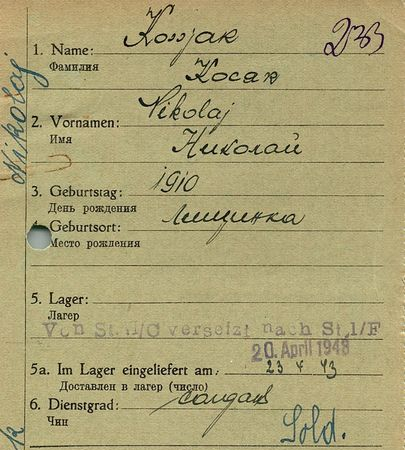 Kossjak
233
1. Name:
Фамилия
Косак
Nikolaj
Nikolaj
2. Vornamen:
Имя
Николай
3. Geburtstag: 1910
День рождения
4. Geburtsort:
Место рождения
5. Lager:
Лагер
Von St. I/C versetzt nach St. I/F
20. April 1943
5a. Im Lager eingeliefert am: 23 V 43
Доставлен в лагер (число)
6. Dienstgrad: солдат
Чин
Sold.